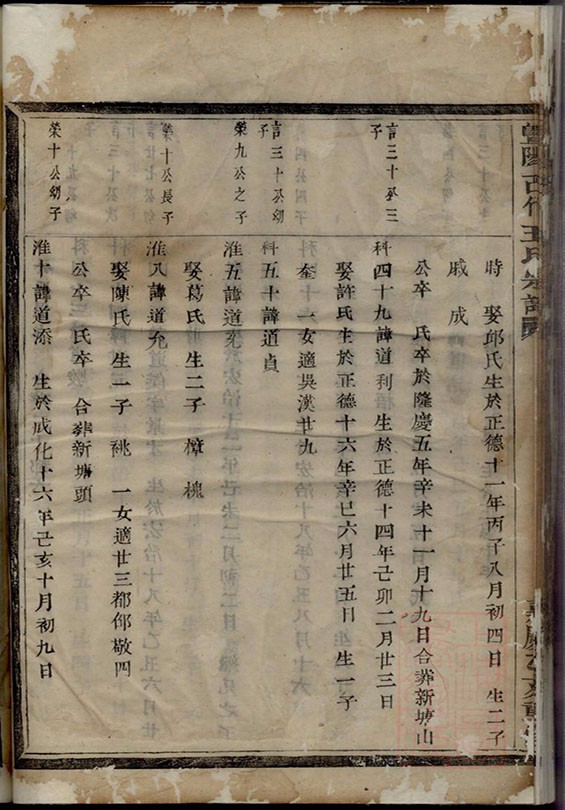 時 娶邱氏生於正德十一年丙子八月初四日 生二子
戚 成
公卒 氏卒於隆慶五年辛未十一月十九日合葬新塘山
言三十公三子
科四十九諱道利 生於正德十四年己卯二月廿三日
娶許氏生於正德十六年辛巳六月廿五日 生一子
奎 一女適吳漢廿九
言三十公幼子
科五十諱道貞
榮九公之子
淮五諱道柔
娶葛氏 生二子 樟 槐
榮十公長子
淮八諱道充
娶陳氏 生一子 祧 一女適廿三都邰敬四
公卒 氏卒 合葬新塘頭
榮十公幼子
淮十諱道添 生於成化十六年己亥十月初九日